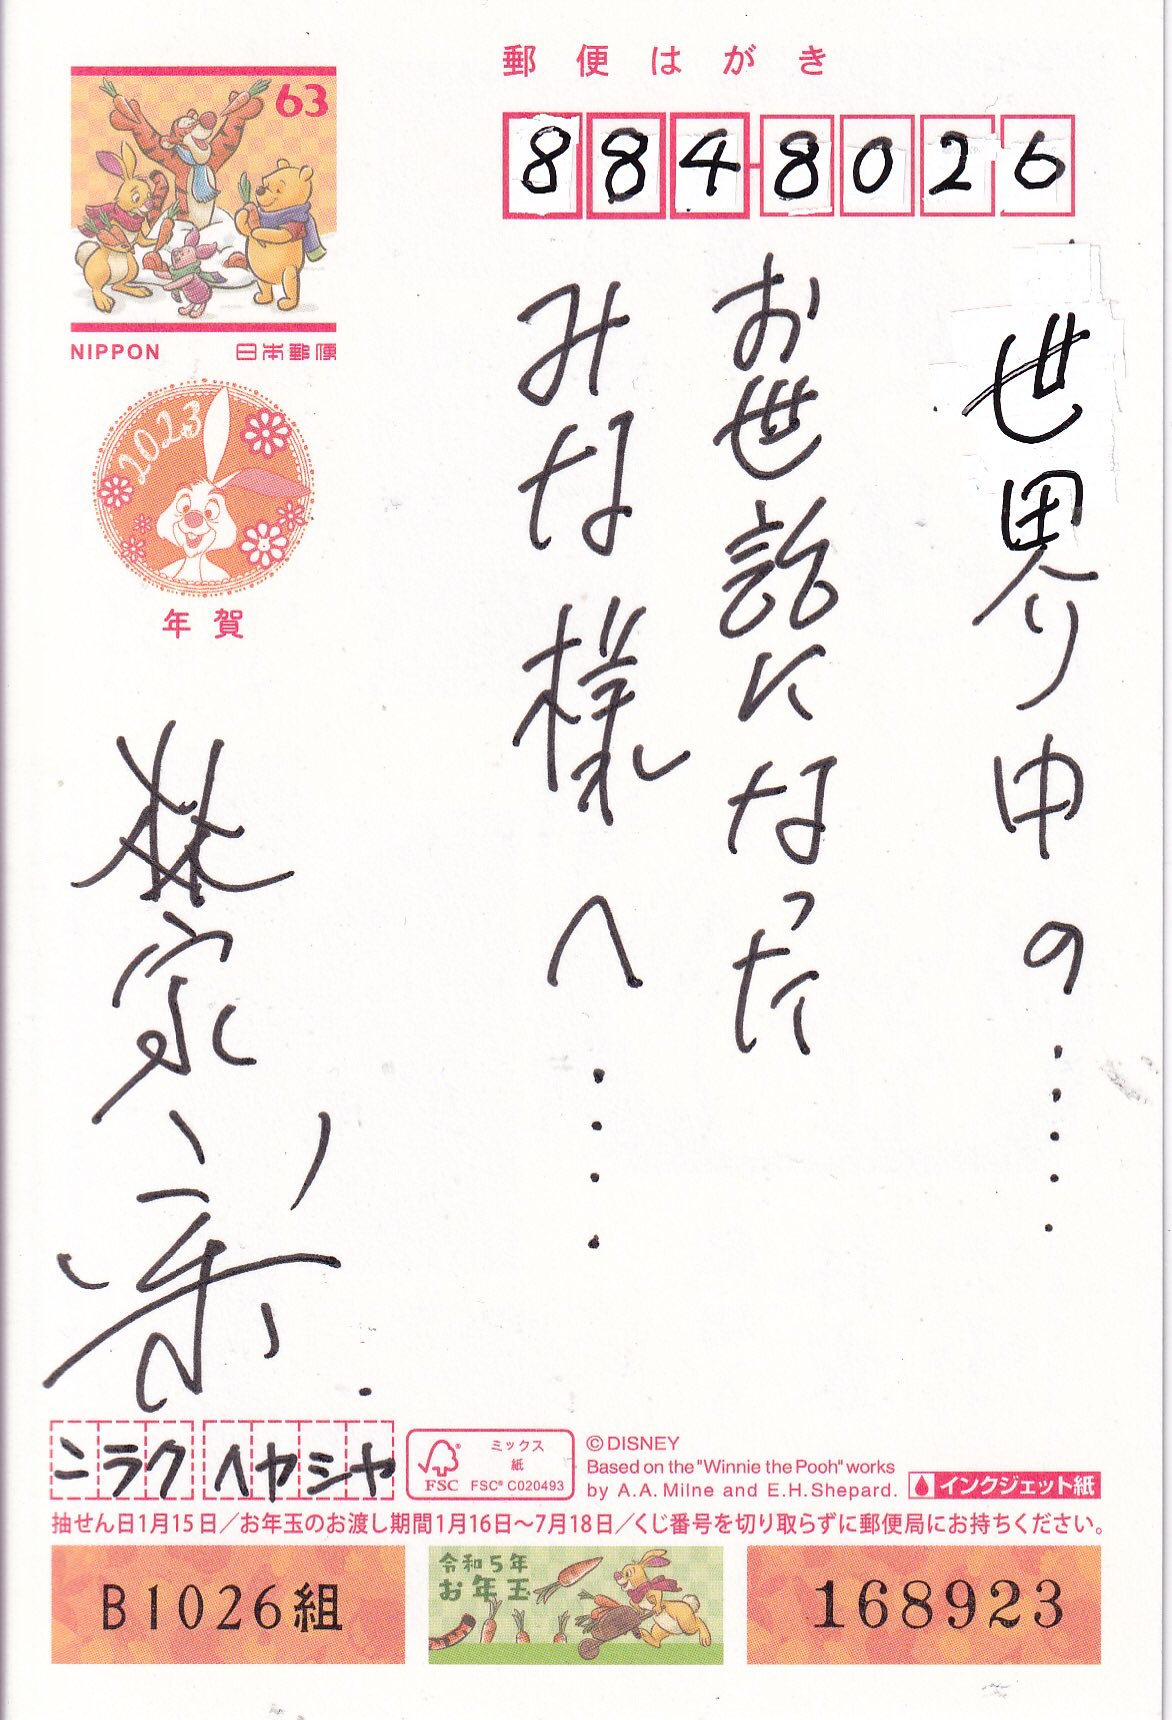 郵便はがき
63
NIPPON 日本郵便
8848026
世界中の……
お世話になった
みな様へ……
2023
年賀
林家ニ楽
ニラク ヘヤシヤ
FSC
ミックス
紙
FSC® C020493
©DISNEY
Based on the "Winnie the Pooh" works
by A.A. Milne and E.H. Shepard.
インクジェット紙
抽せん日1月15日/お年玉のお渡し期間1月16日〜7月18日/くじ番号を切り取らずに郵便局にお持ちください。
B1026組
令和5年
お年玉
168923